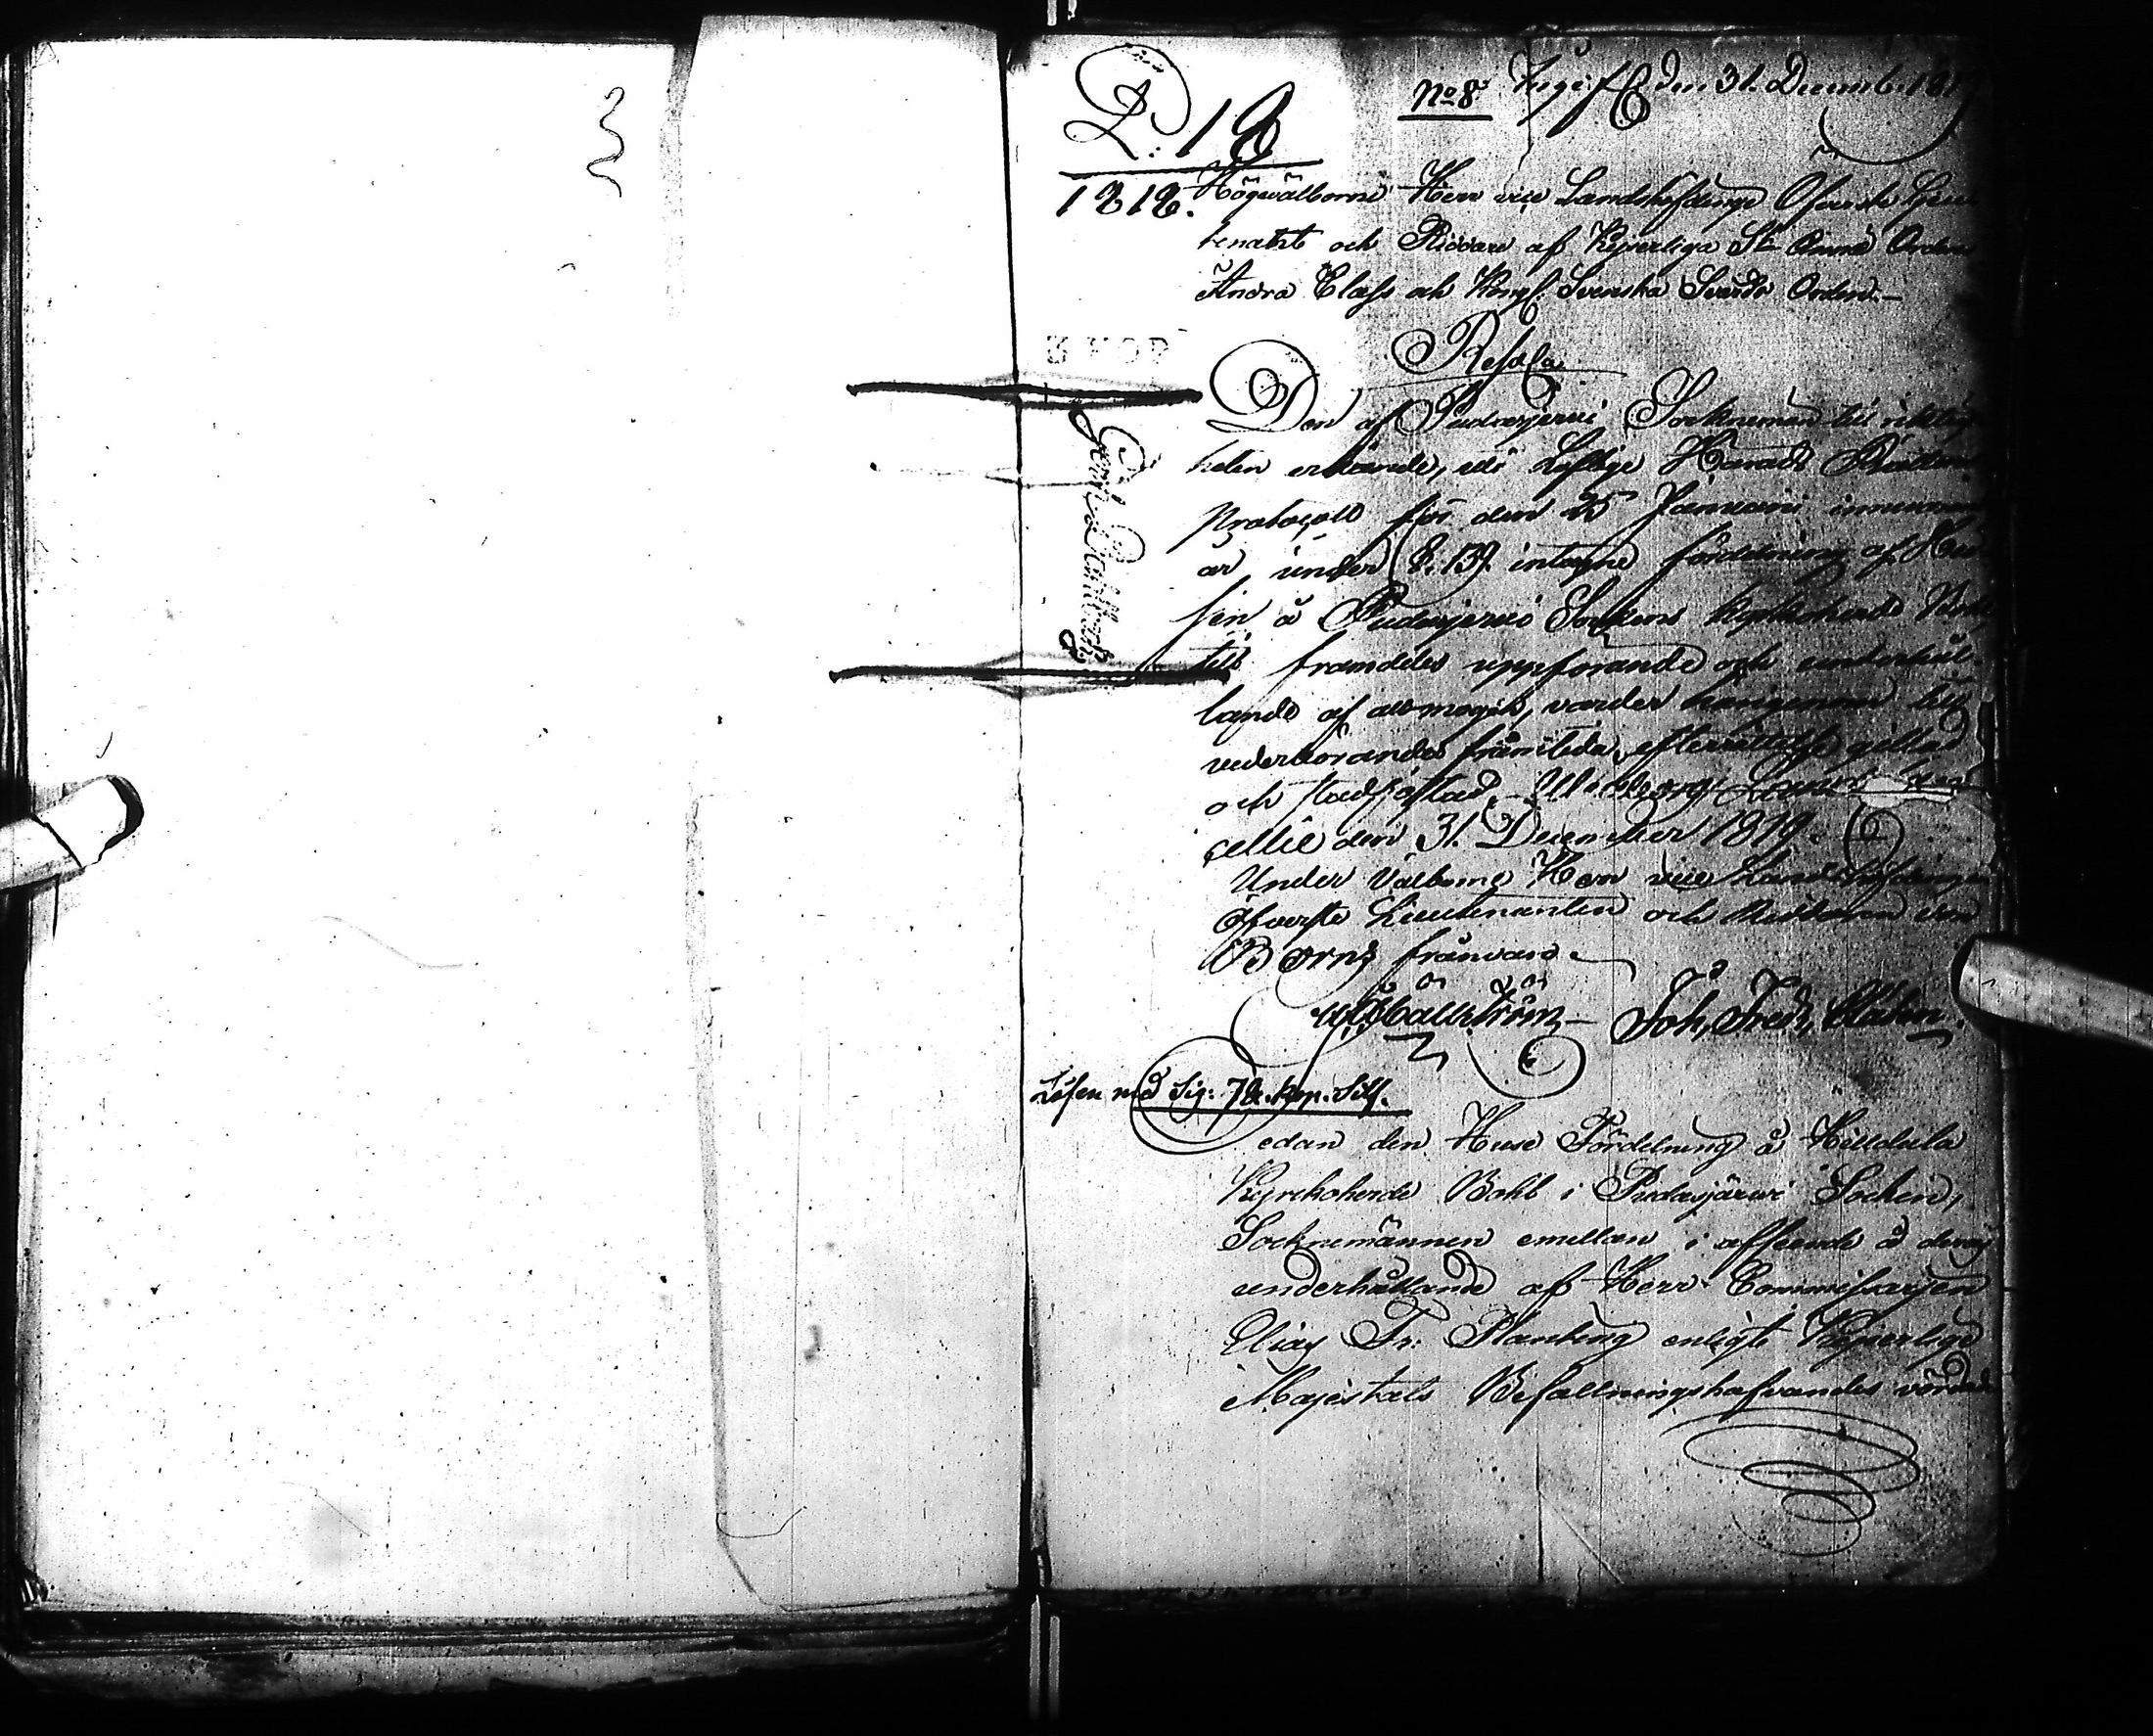 L: 18
1818.
No 8 Ingif den 31. Decemb. 1819
Högwälborne Herr vice Landshöfdinge Öfverste Lieu
tenant och Riddare af Kejserliga St Annæ Orden
Andra Class och Kongl. Svenska Svärds Orden.
Resol.
Den af Pudasjervi Socknemän till riktig
heten erkände, uti Laflige Härads Rättens
Protocoll för den 25 Januarii innevarande
år under §. 139. intagne fördelning af Hu
sen å Pudasjervi Sockens Kyrkoherde Bohl
till framdeles uppförande och underhål-
lande af allmogen, varder härigenom till
vederbörandes framtida efterrättelse gillad
och stadfästad. Uleåborgs Lands
cellie den 31. December 1819.
Under Välborne Herr vice Landshöfdingen
Öfverste Lieutenanten och Riddaren von
Borns frånvaro.
Hallström Joh, Fredr,
Lösen med Sig: 72. kop. Silf.
edan den Huse Fördelning å
Kyrkoherde Bohl i Pudasjärvi Socken,
Socknemännen emellan i afseende å deras
underhållande af Herr Commissarien
Elias Fr: Planting enligt Kejserlige
Majestäts Befallningshafvandes vördade